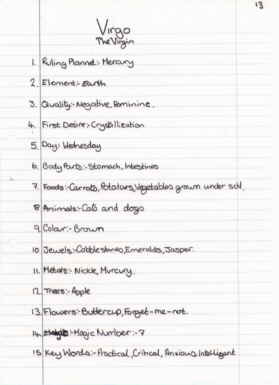 13
Virgo
The Virgin
1. Ruling Plannet:- Mercury
2. Element:- Earth
3. Quality:- Negative, Feminine.
4. First Desire:- Crystillization
5. Day:- Wednesday
6. Body Parts:- Stomach, Intestines
7. Foods:- Carrots, Potatoes, Vegetables grown under soil
8 Animals:- Cats and dogs
9. Colour:- Brown
10 Jewels:- Cobblestones, Emeralds, Jasper.
11. Metals:- Nickle, Murcury.
12. Trees:- Apple
13. Flowers:- Buttercup, Forget-me-not.
14. Magic Number:- 7
15 Key Words:- Practical, Critical, Anxious, Intelligent